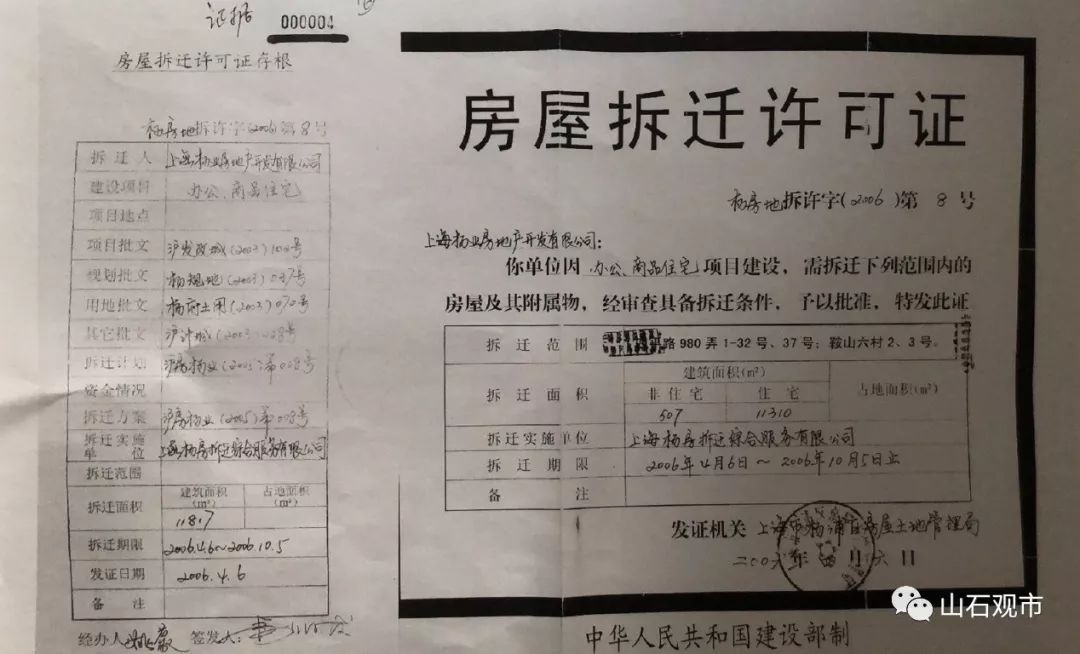 证据
000004
房屋拆迁许可证存根
杨房地拆许字(2006)第8号
拆迁人 上海杨业房地产开发有限公司
建设项目 办公、商品住宅
项目地点
项目批文 沪发改城(2003)102号
规划批文 杨规地(2003)037号
用地批文 杨府土用(2003)070号
其它批文 沪计城(2003)028号
拆迁计划
资金情况
拆迁方案 沪房杨业(2005)第008号
拆迁实施单位 上海杨房拆迁综合服务有限公司
拆迁范围
拆迁面积 建筑面积(m²) 占地面积(m²)
11817
拆迁期限 2006.4.6~2006.10.5
发证日期 2006.4.6
备注
经办人 签发人:
房屋拆迁许可证
杨房地拆许字(2006)第 8 号
上海杨业房地产开发有限公司:
你单位因 办公、商品住宅 项目建设，需拆迁下列范围内的
房屋及其附属物，经审查具备拆迁条件，予以批准，特发此证
拆迁范围 路 980 弄 1-32 号、37 号；鞍山六村 2、3 号。
拆迁面积 建筑面积(m²) 占地面积(m²)
非住宅 住宅
507 11310
拆迁实施单位 上海杨房拆迁综合服务有限公司
拆迁期限 2006年4月6日~2006年10月5日止
备注
发证机关 上海市杨浦区房屋土地管理局
二00六年四月六日
中华人民共和国建设部制
山石观市